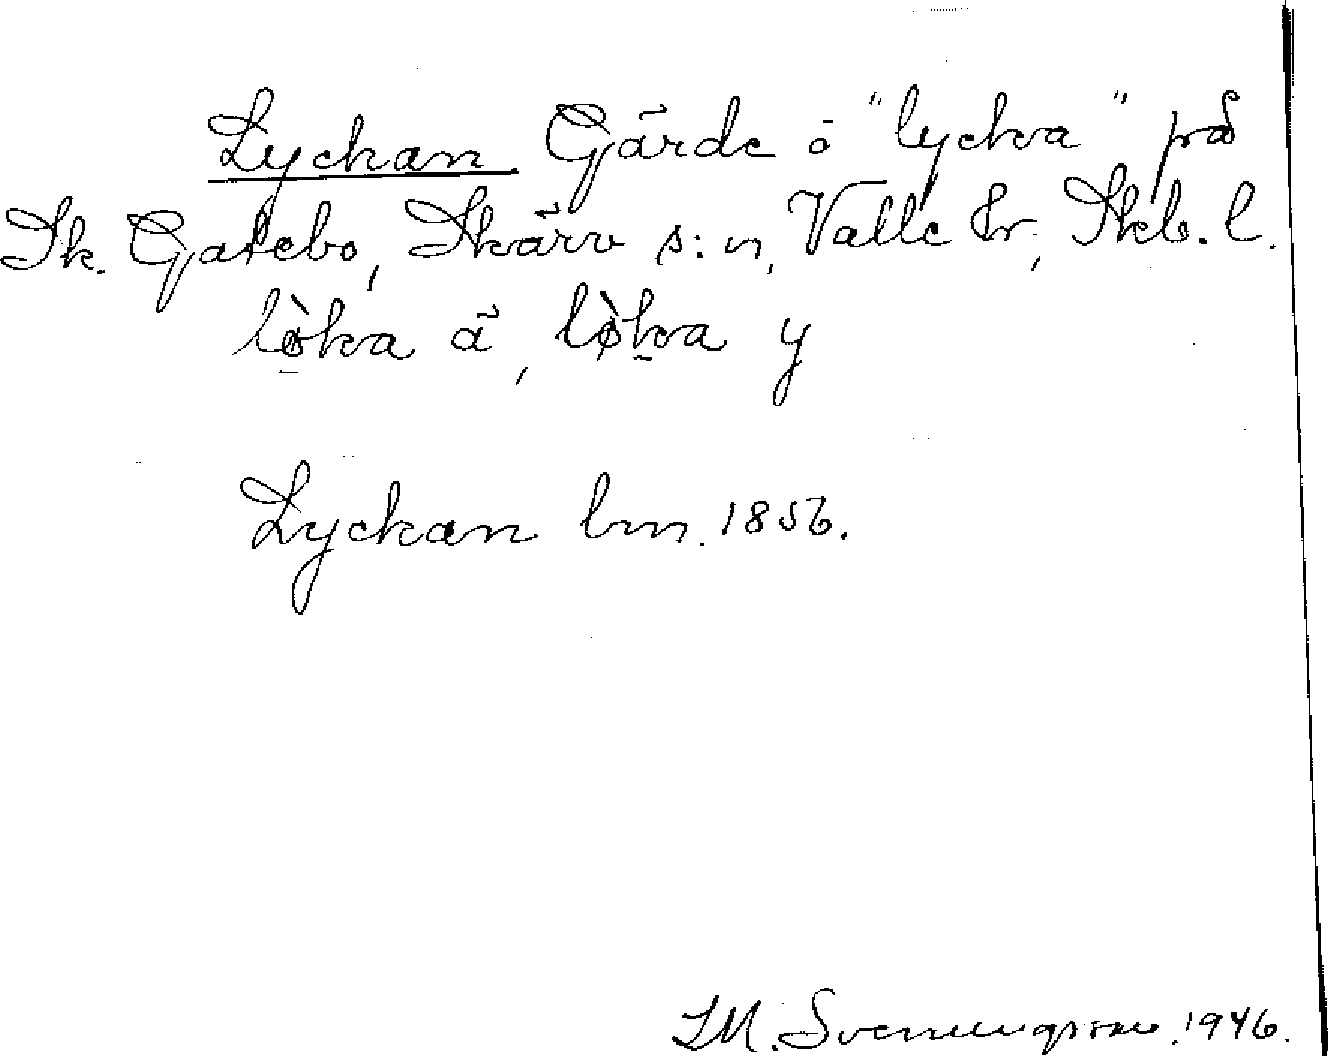 Lyckan Gärde o "lycka" på
Sk. Gatebo, Skärv s:n, Valle hr, Skb. l.
lø̀ka ä, lø̀ka y
Lyckan lm. 1856.
S.M. Svenningsson. 1946.